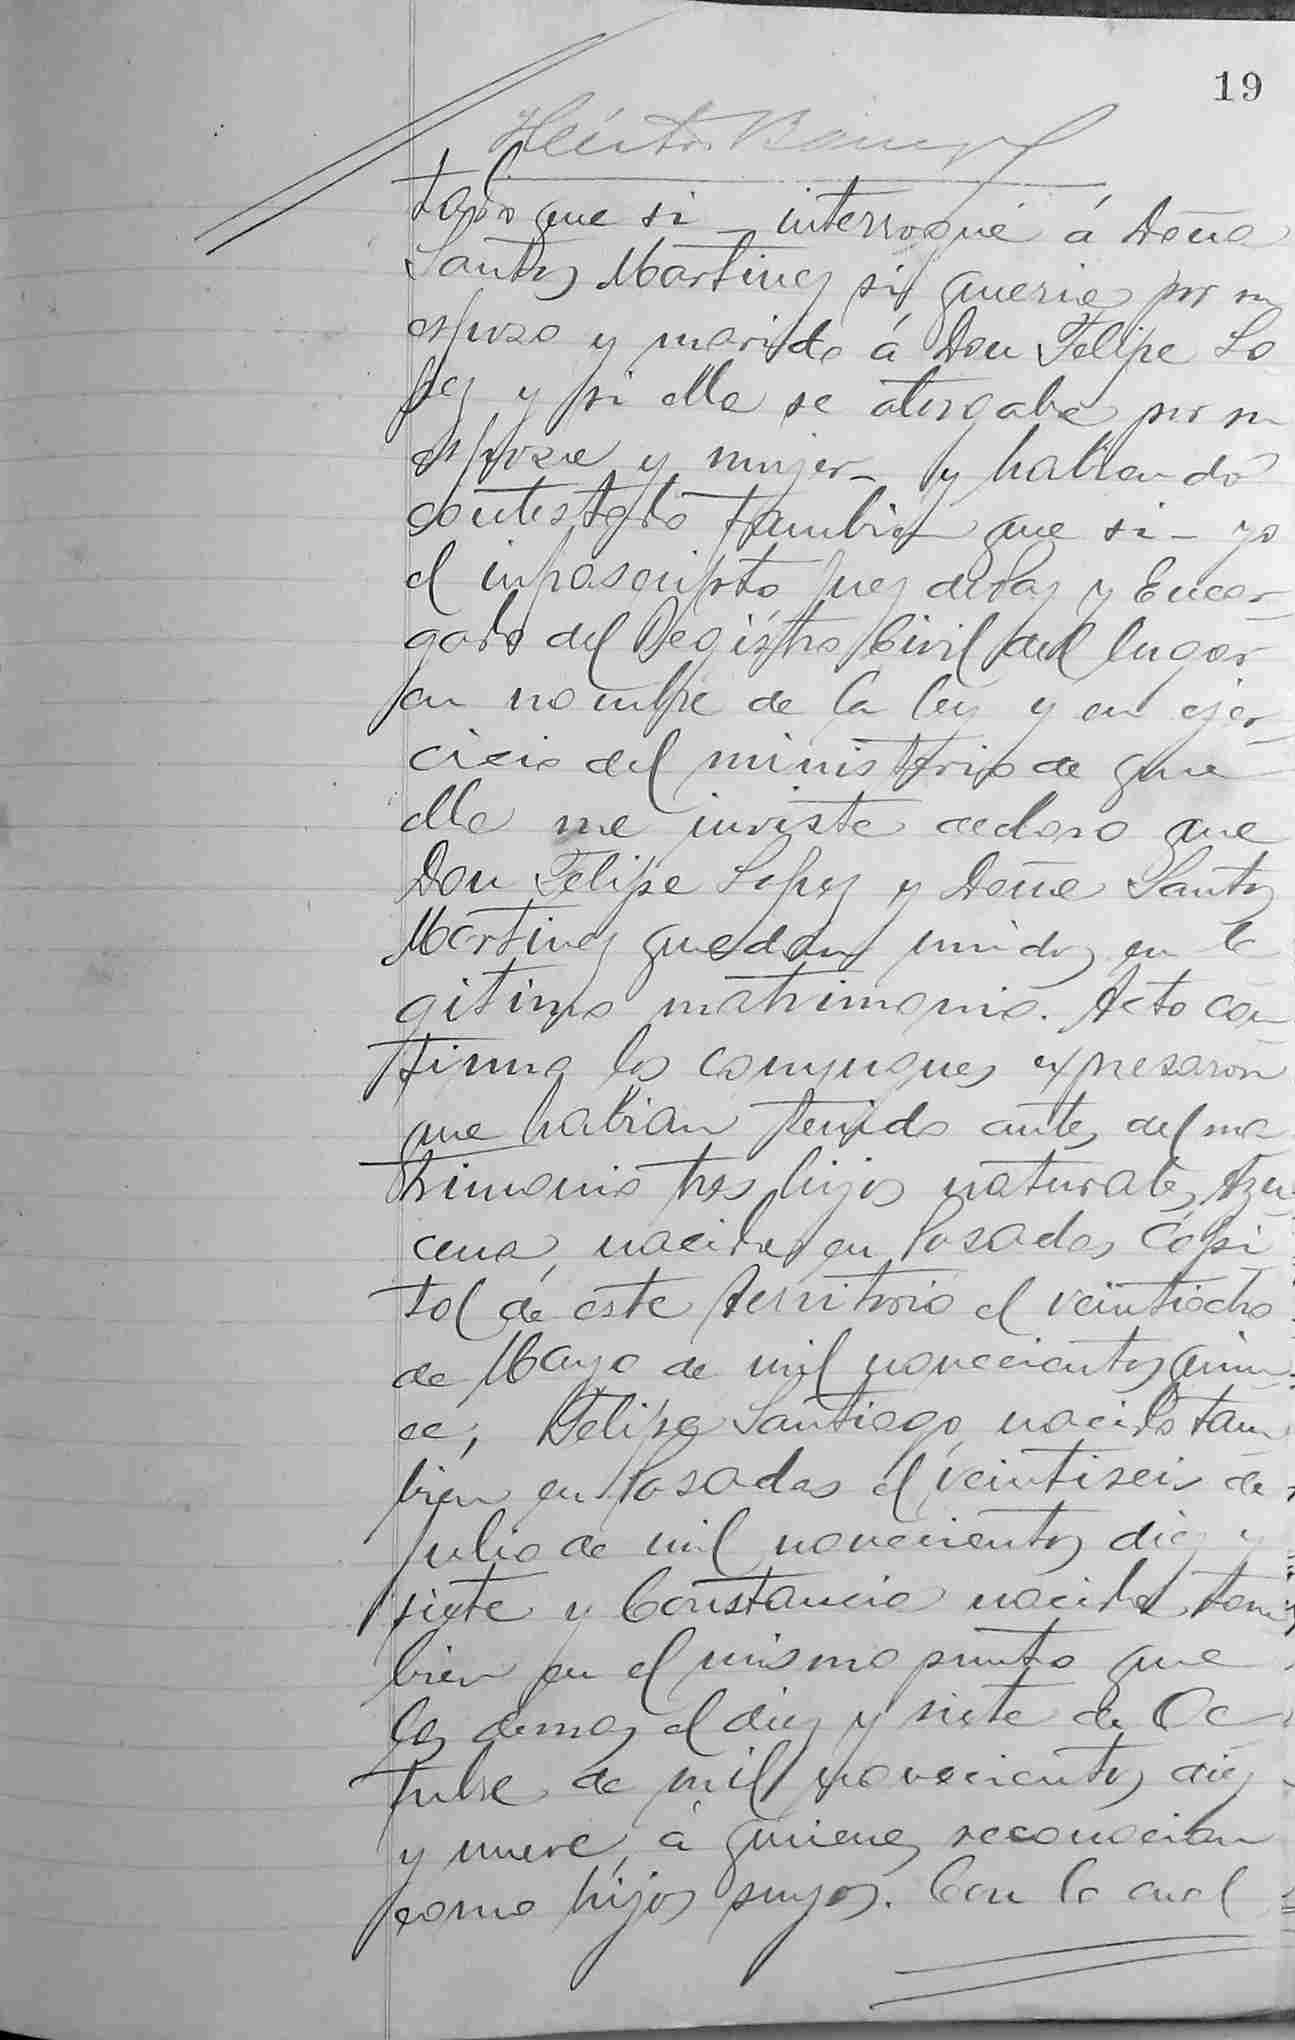 19
Héctor
tado que si – interrogué á Doña
Santos Martinez si queria por su
esposo y marido á Don Felipe Lo
pez y si ella se otorgaba por su
esposa y mujer – y habiendo
contestado tambien que si – yo
el infrascripto Juez de Paz y Encar-
gado del Registro Civil del lugar
en nombre de la ley y en ejer-
cicio del ministerio de que
ella me inviste declaro que
Don Felipe Lopez y Doña Santos
Martinez quedan unidos en le
gitimo matrimonio. Acto con
tinuo los conyugues expresaron
que habian tenido antes del ma
trimonio tres hijos naturales, Azu
cena, nacida en Posadas, Capi
tal de este territorio el veintiocho
de Mayo de mil novecientos quin-
ce, Felipe Santiago, nacido tam
bien en Posadas el veintiseis de
Julio de mil novecientos diez y
siete y Constancia nacida tam
bien en el mismo punto que
los demas el diez y siete de Oc
tubre de mil novecientos diez
y nueve, á quienes reconocian
como hijos suyos. Con lo cual